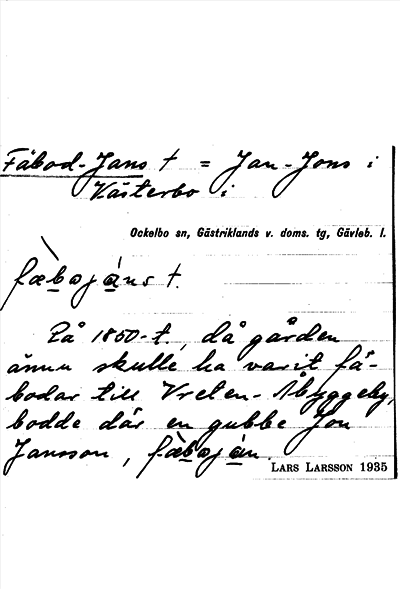 Fäbod-Jans † = Jan-Jons i
Västerbo i
Ockelbo sn, Gästriklands v. doms. tg, Gävleb. l.
fæbojáns †.
På 1850-t, då gården
ännu skulle ha varit fä-
bodar till Vreten-Åbyggeby,
bodde där en gubbe Jon
Jansson, fæboján.
LARS LARSSON 1935